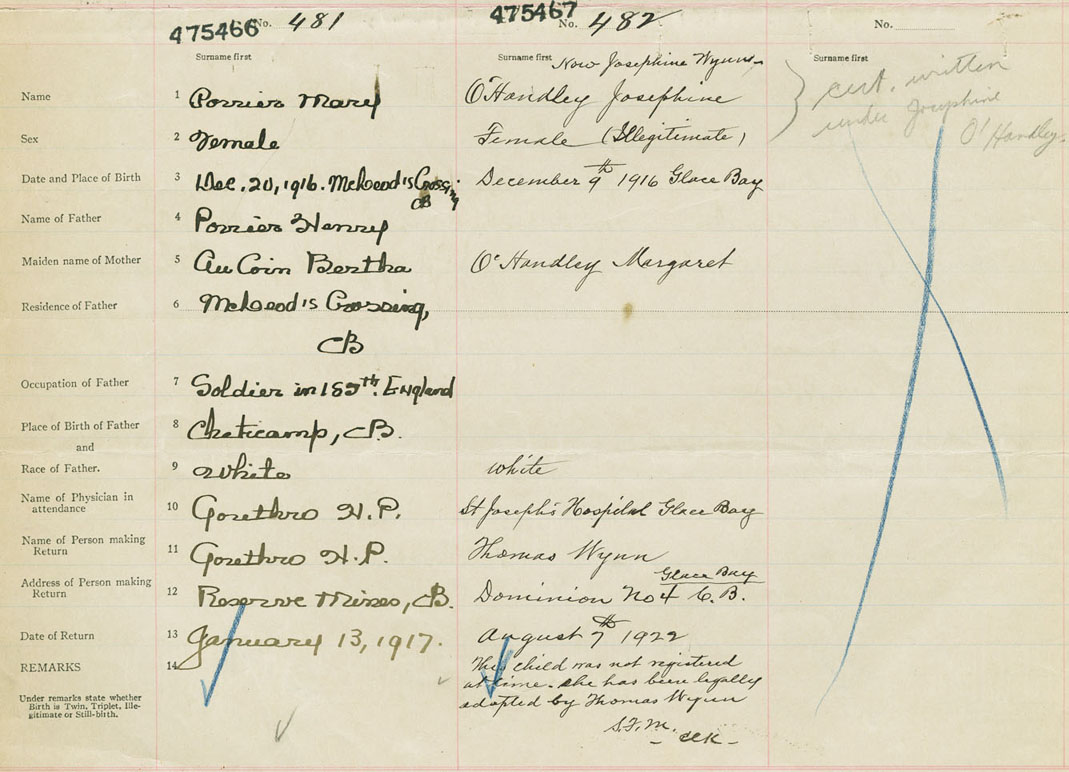 475466 No. 481
475467 No. 482
No.
Surname first
Surname first Now Josephine Wynn
Surname first
Name 1 Porrier Mary O'Handley Josephine
cert. written
under Josephine
O'Handley.
Sex 2 Female Female (Illegitimate)
Date and Place of Birth 3 Dec. 20, 1916. McLeod's Crossing December 9th 1916 Glace Bay
CB
Name of Father 4 Porrier Henry
Maiden name of Mother 5 AuCoin Bertha O'Handley Margaret
Residence of Father 6 McLeod's Crossing,
CB
Occupation of Father 7 Soldier in 185th. England
Place of Birth of Father 8 Cheticamp, CB.
and
Race of Father. 9 White white
Name of Physician in
attendance 10 Gorethro H.P. St Joseph's Hospital Glace Bay
Name of Person making
Return 11 Gorethro H.P. Thomas Wynn
Address of Person making
Return 12 Reserve Mines, CB. Dominion No 4 C.B.
Glace Bay
Date of Return 13 January 13, 1917. August 7th 1922
REMARKS 14 This child was not registered
at time. she has been legally
adopted by Thomas Wynn
S.F.M.
- clk -
Under remarks state whether
Birth is Twin, Triplet, Ille-
gitimate or Still-birth.